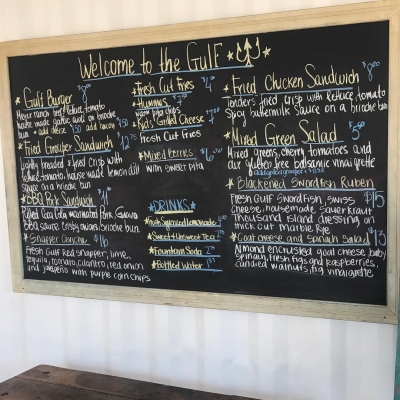 Welcome to the Gulf
Gulf Burger $8
Meyer ranch beef, lettuce, tomato
house made garlic aioli on brioche
+ add cheese .50 add bacon 1.50
Fried Grouper Sandwich 12.75
Lightly breaded + fried crisp with
lettuce, tomato, house made lemon dill
sauce on a brioche bun
BBQ Pork Sandwich
Pulled Coca Cola marinated Pork, Guava
BBQ sauce, crispy onions, brioche bun.
Snapper Ceviche $16
Fresh Gulf Red snapper, lime,
tequila, tomato, cilantro, red onion
and jalapeño with purple corn chips
Fresh Cut Fries $4
Hummus
warm pita chips
Kids Grilled Cheese
Fresh Cut Fries
Mixed Berries $6
with sweet pita
DRINKS
Fresh Squeezed Lemonade
Sweet + Unsweet Tea
Fountain Soda
Bottled Water
Fried Chicken Sandwich $8.00
Tenders fried crisp with lettuce, tomato
Spicy buttermilk sauce on a brioche bun
Mixed Green Salad $5.00
Mixed greens, cherry tomatoes and
our gluten free balsamic vinaigrette
Blackened Swordfish Ruben $15
Fresh Gulf Swordfish, swiss
cheese, housemade sauer kraut
thousand island dressing on
thick cut marble Rye
Goat cheese and spinach Salad $13
Almond encrusted goat cheese, baby
Spinach, fresh figs and raspberries,
candied walnuts, fig vinaigrette.